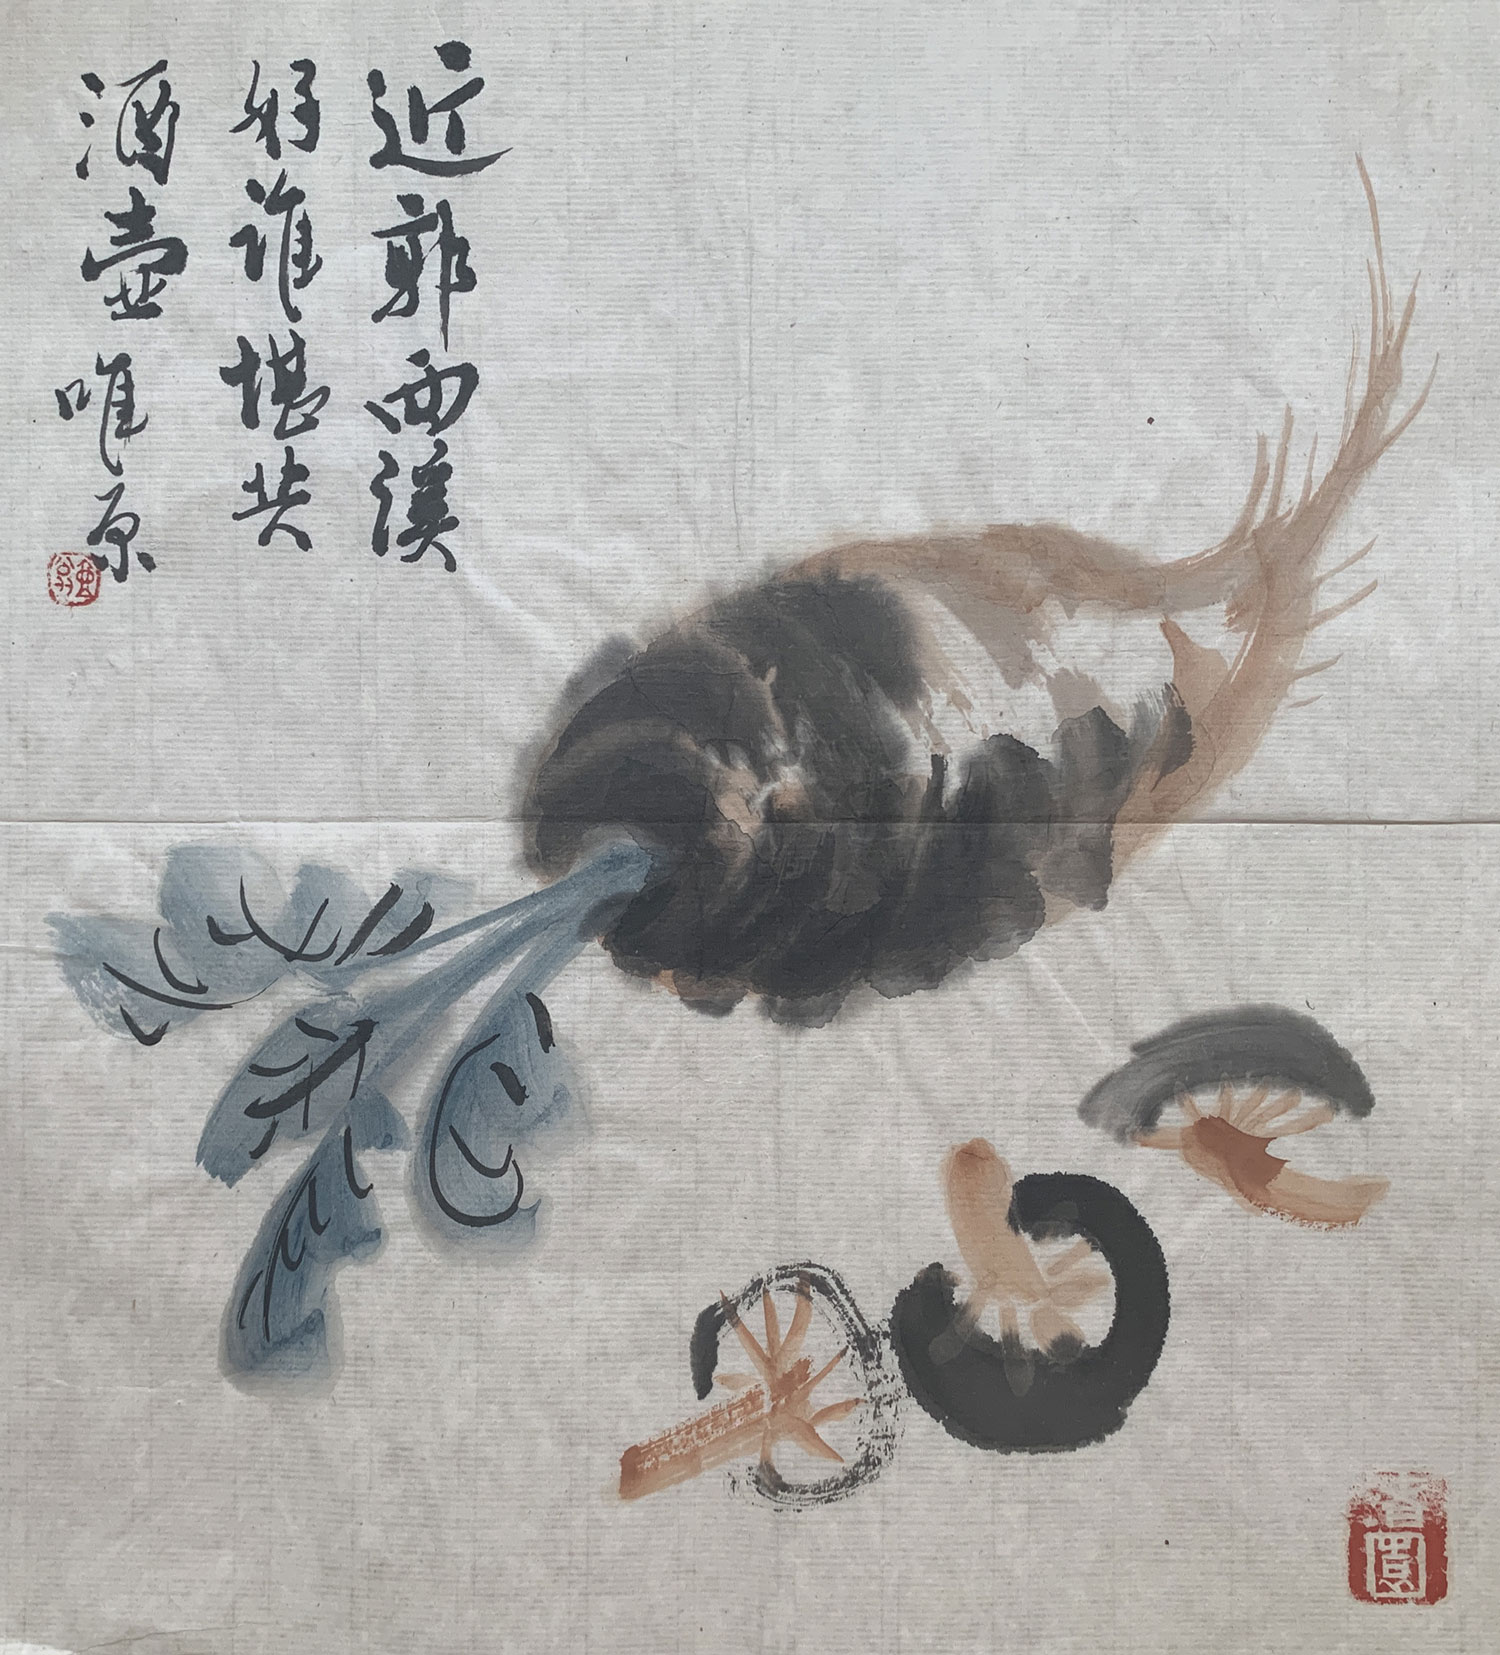 近郭西溪
好谁堪共
酒壶唯原